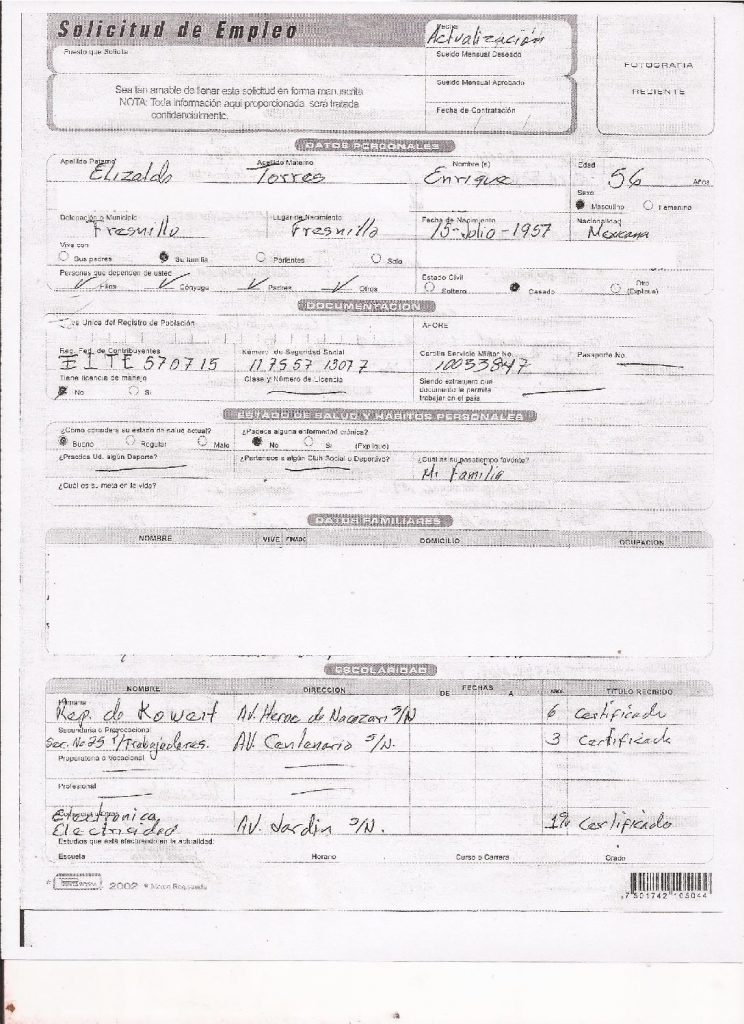 Solicitud de Empleo
Fecha
Actualización
Puesto que Solicita
Sueldo Mensual Deseado
Sea tan amable de llenar esta solicitud en forma manuscrita
NOTA: Toda información aquí proporcionada será tratada
confidencialmente.
Sueldo Mensual Aprobado
Fecha de Contratación
FOTOGRAFIA
RECIENTE
DATOS PERSONALES
Apellido Paterno Apellido Materno Nombre (s) Edad
Elizalde Torres Enrique 56 Años
Sexo
Masculino Femenino
Delegación o Municipio Lugar de Nacimiento Fecha de Nacimiento Nacionalidad
Fresnillo Fresnillo 15-Julio-1957 Mexicana
Vive con
Sus padres Su familia Parientes Solo
Personas que dependen de usted
Hijos Cónyuge Padres Otros
Estado Civil
Soltero Casado Otro (Explique)
DOCUMENTACION
Unica del Registro de Población AFORE
Reg. Fed. de Contribuyentes Número de Seguridad Social Cartilla Servicio Militar No. Pasaporte No.
EITE 570715 11 75 57 1307 7 10033847
Tiene licencia de manejo Clase y Número de Licencia Siendo extranjero que
documento le permita
trabajar en el país
No Si
ESTADO DE SALUD Y HABITOS PERSONALES
¿Cómo considera su estado de salud actual? ¿Padece alguna enfermedad crónica?
Bueno Regular Malo No Si (Explique)
¿Practica Ud. algún Deporte? ¿Pertenece a algún Club Social o Deportivo? ¿Cuál es su pasatiempo favorito?
Mi Familia
¿Cuál es su meta en la vida?
DATOS FAMILIARES
NOMBRE VIVE FINADO DOMICILIO OCUPACION
ESCOLARIDAD
NOMBRE DIRECCION FECHAS DE A AÑOS TITULO RECIBIDO
Primaria
Rep. de Kowait Av. Heroe de Nacozari S/N 6 Certificado
Secundaria o Prevocacional
Sec. No 25 P/Trabajadores. AV. Centenario S/N. 3 Certificada
Preparatoria o Vocacional
Profesional
Electronica
Electricidad AV. Jardin S/N. Certificado
Estudios que está efectuando en la actualidad:
Escuela Horario Curso o Carrera Grado
2002 Marca Registrada
7 501742 103044